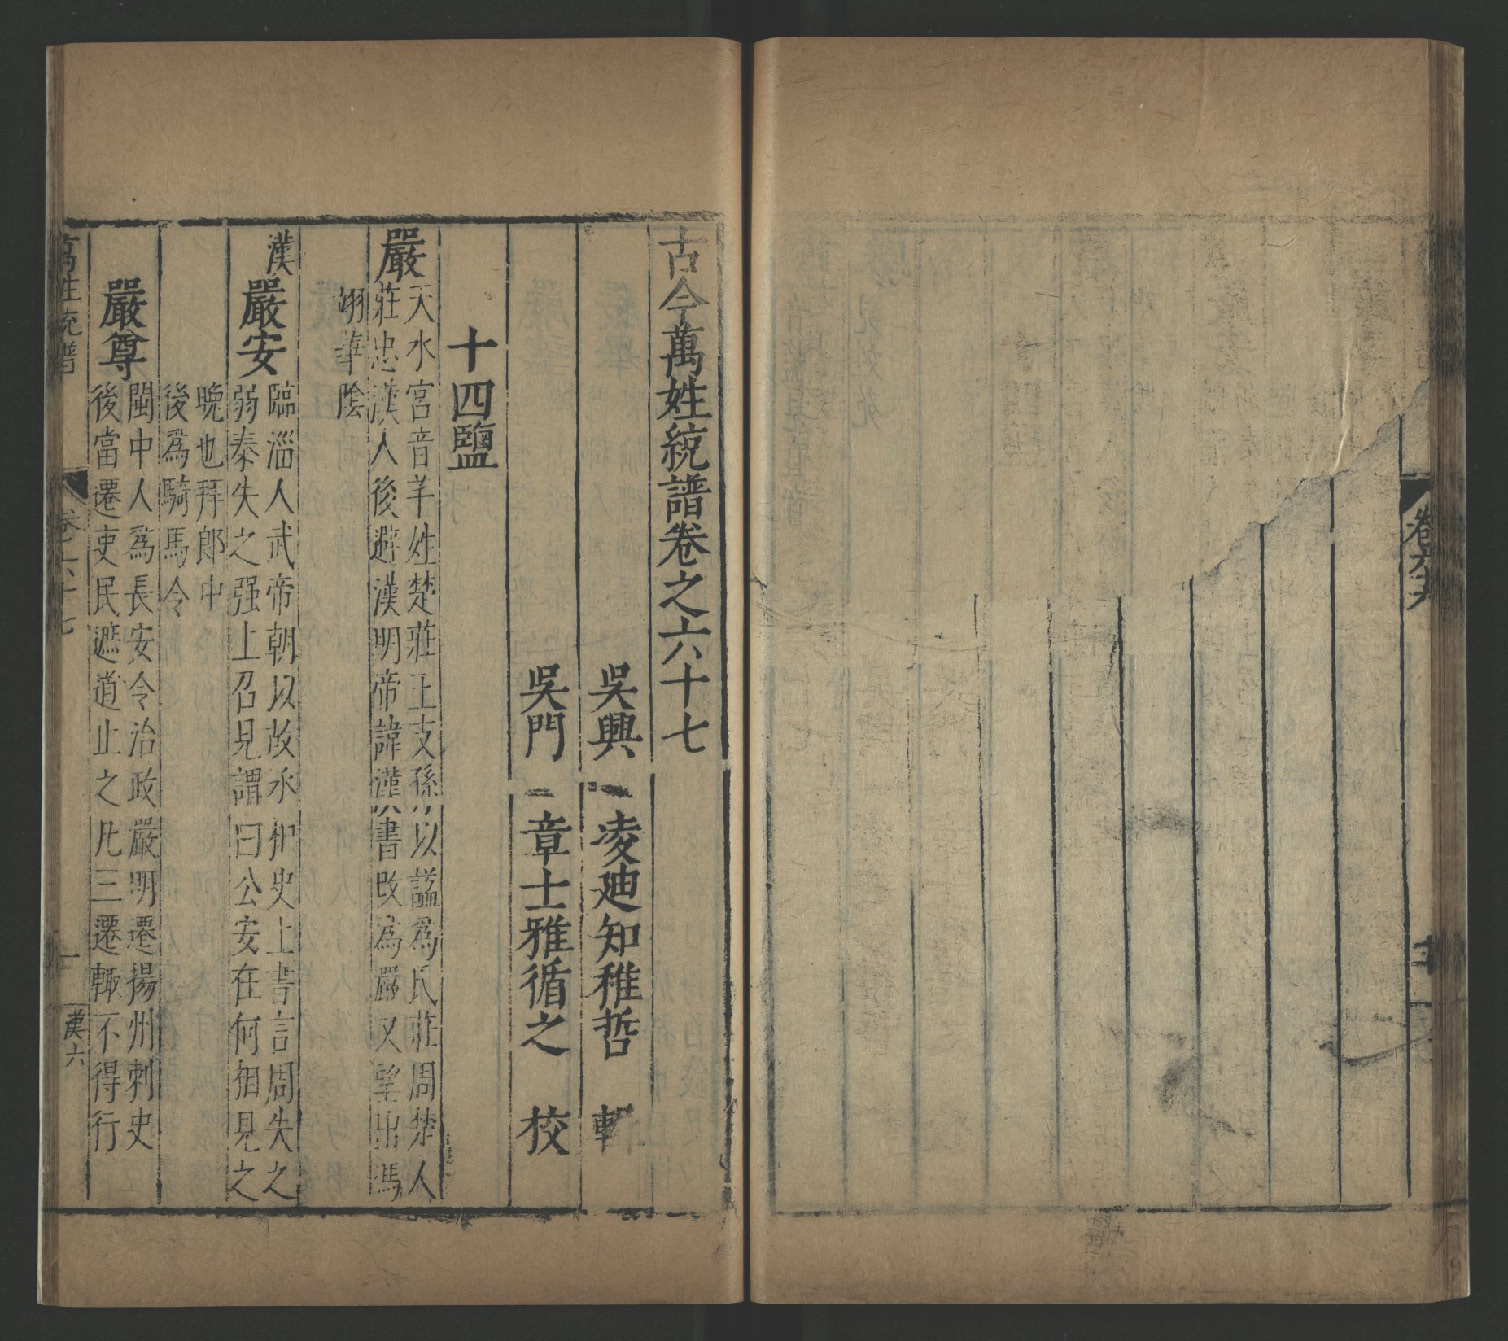 卷六十六
古今萬姓統譜卷之六十七
吳興 凌迪知稚哲 輯
吳門 章士雅循之 校
十四鹽
嚴
天水宮音羊姓楚莊王支孫以謚爲氏莊周楚人
莊忠漢人後避漢明帝諱漢書改爲嚴又望出馮
翊華陰
漢
嚴安
臨淄人武帝朝以故丞相史上書言周失之
弱秦失之强上召見謂曰公安在何相見之
晚也拜郎中
後爲騎馬令
嚴尊
閬中人爲長安令治政嚴明遷揚州刺史
後當遷吏民遮道止之凡三遷輒不得行
萬姓統譜
卷六十七
一
漢六